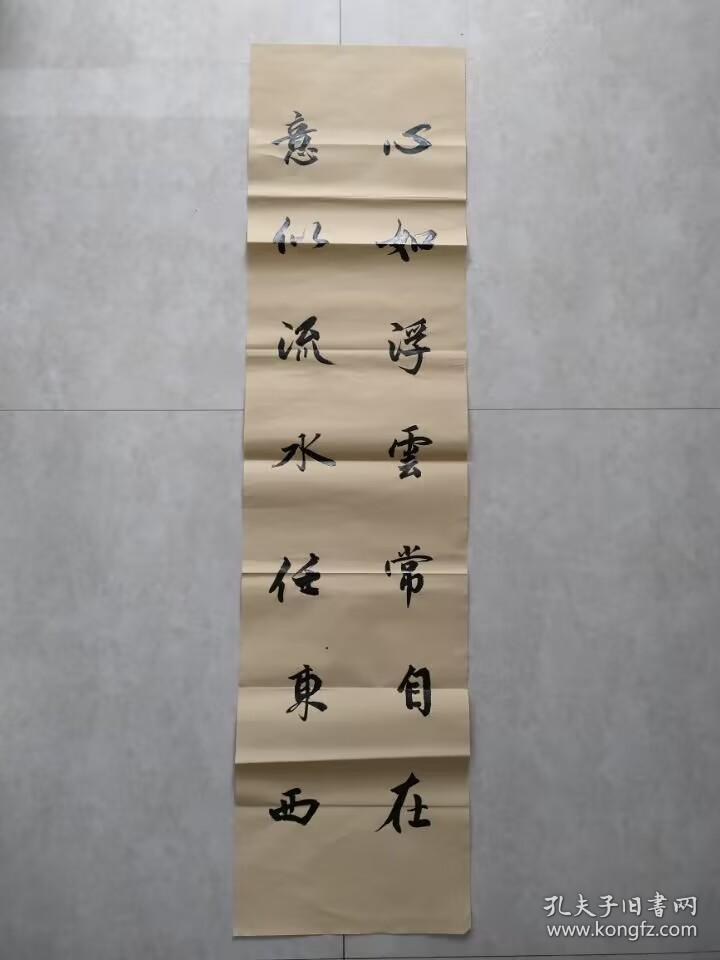 心如浮雲常自在
意似流水任東西
孔夫子旧书网
www.kongfz.com